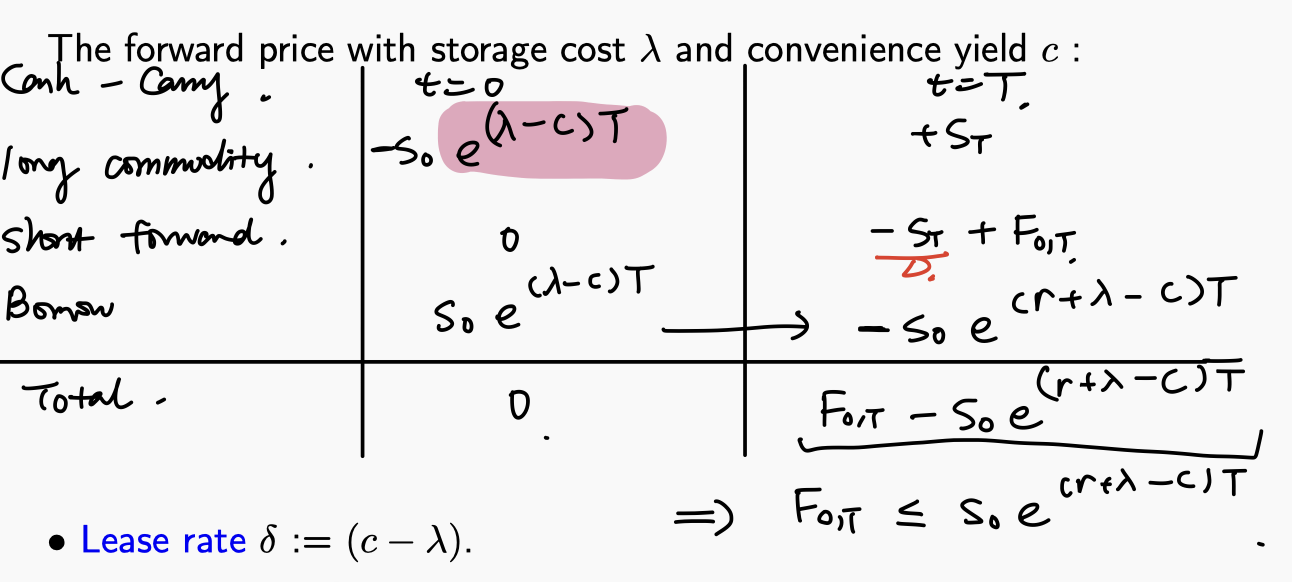 The forward price with storage cost λ and convenience yield c :
Cash - Carry. t=0 t=T.
long commodity. -S₀ e^(λ-c)T +S_T
short forward. 0 -S_T + F₀,T.
D.
Borrow S₀ e^(λ-c)T → -S₀ e^(r+λ-c)T
Total. 0. F₀,T - S₀ e^(r+λ-c)T
⇒ F₀,T ≤ S₀ e^(r+λ-c)T.
• Lease rate δ := (c − λ).